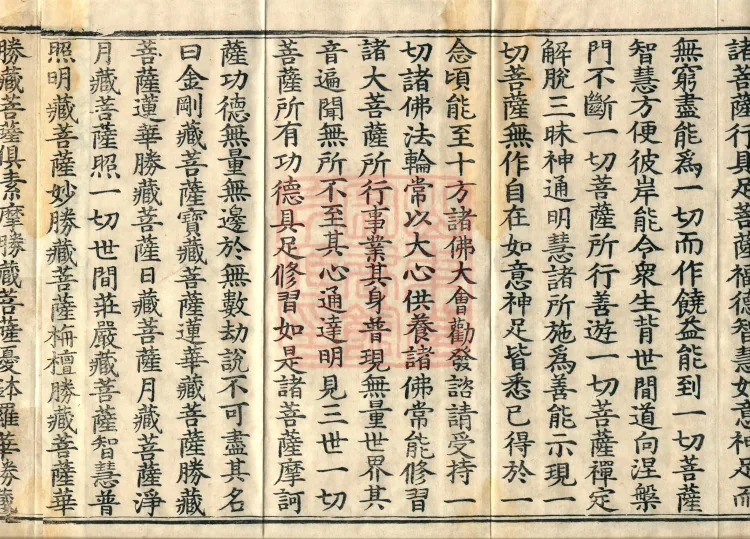 諸菩薩行具足菩薩福德智慧如意神足而
無窮盡能爲一切而作饒益能到一切菩薩
智慧方便彼岸能令衆生背世間道向涅槃
門不斷一切菩薩所行善遊一切菩薩禪定
解脫三昧神通明慧諸所施爲善能示現一
切菩薩無作自在如意神足皆悉已得於一
念頃能至十方諸佛大會勸發諮請受持一
切諸佛法輪常以大心供養諸佛常能修習
諸大菩薩所行事業其身普現無量世界其
音遍聞無所不至其心通達明見三世一切
菩薩所有功德具足修習如是諸菩薩摩訶
薩功德無量無邊於無數劫說不可盡其名
曰金剛藏菩薩寶藏菩薩蓮華藏菩薩勝藏
菩薩蓮華勝藏菩薩日藏菩薩月藏菩薩淨
月藏菩薩照一切世間莊嚴藏菩薩智慧普
照明藏菩薩妙勝藏菩薩栴檀勝藏菩薩華
勝藏菩薩俱素摩勝藏菩薩憂鉢羅華勝藏